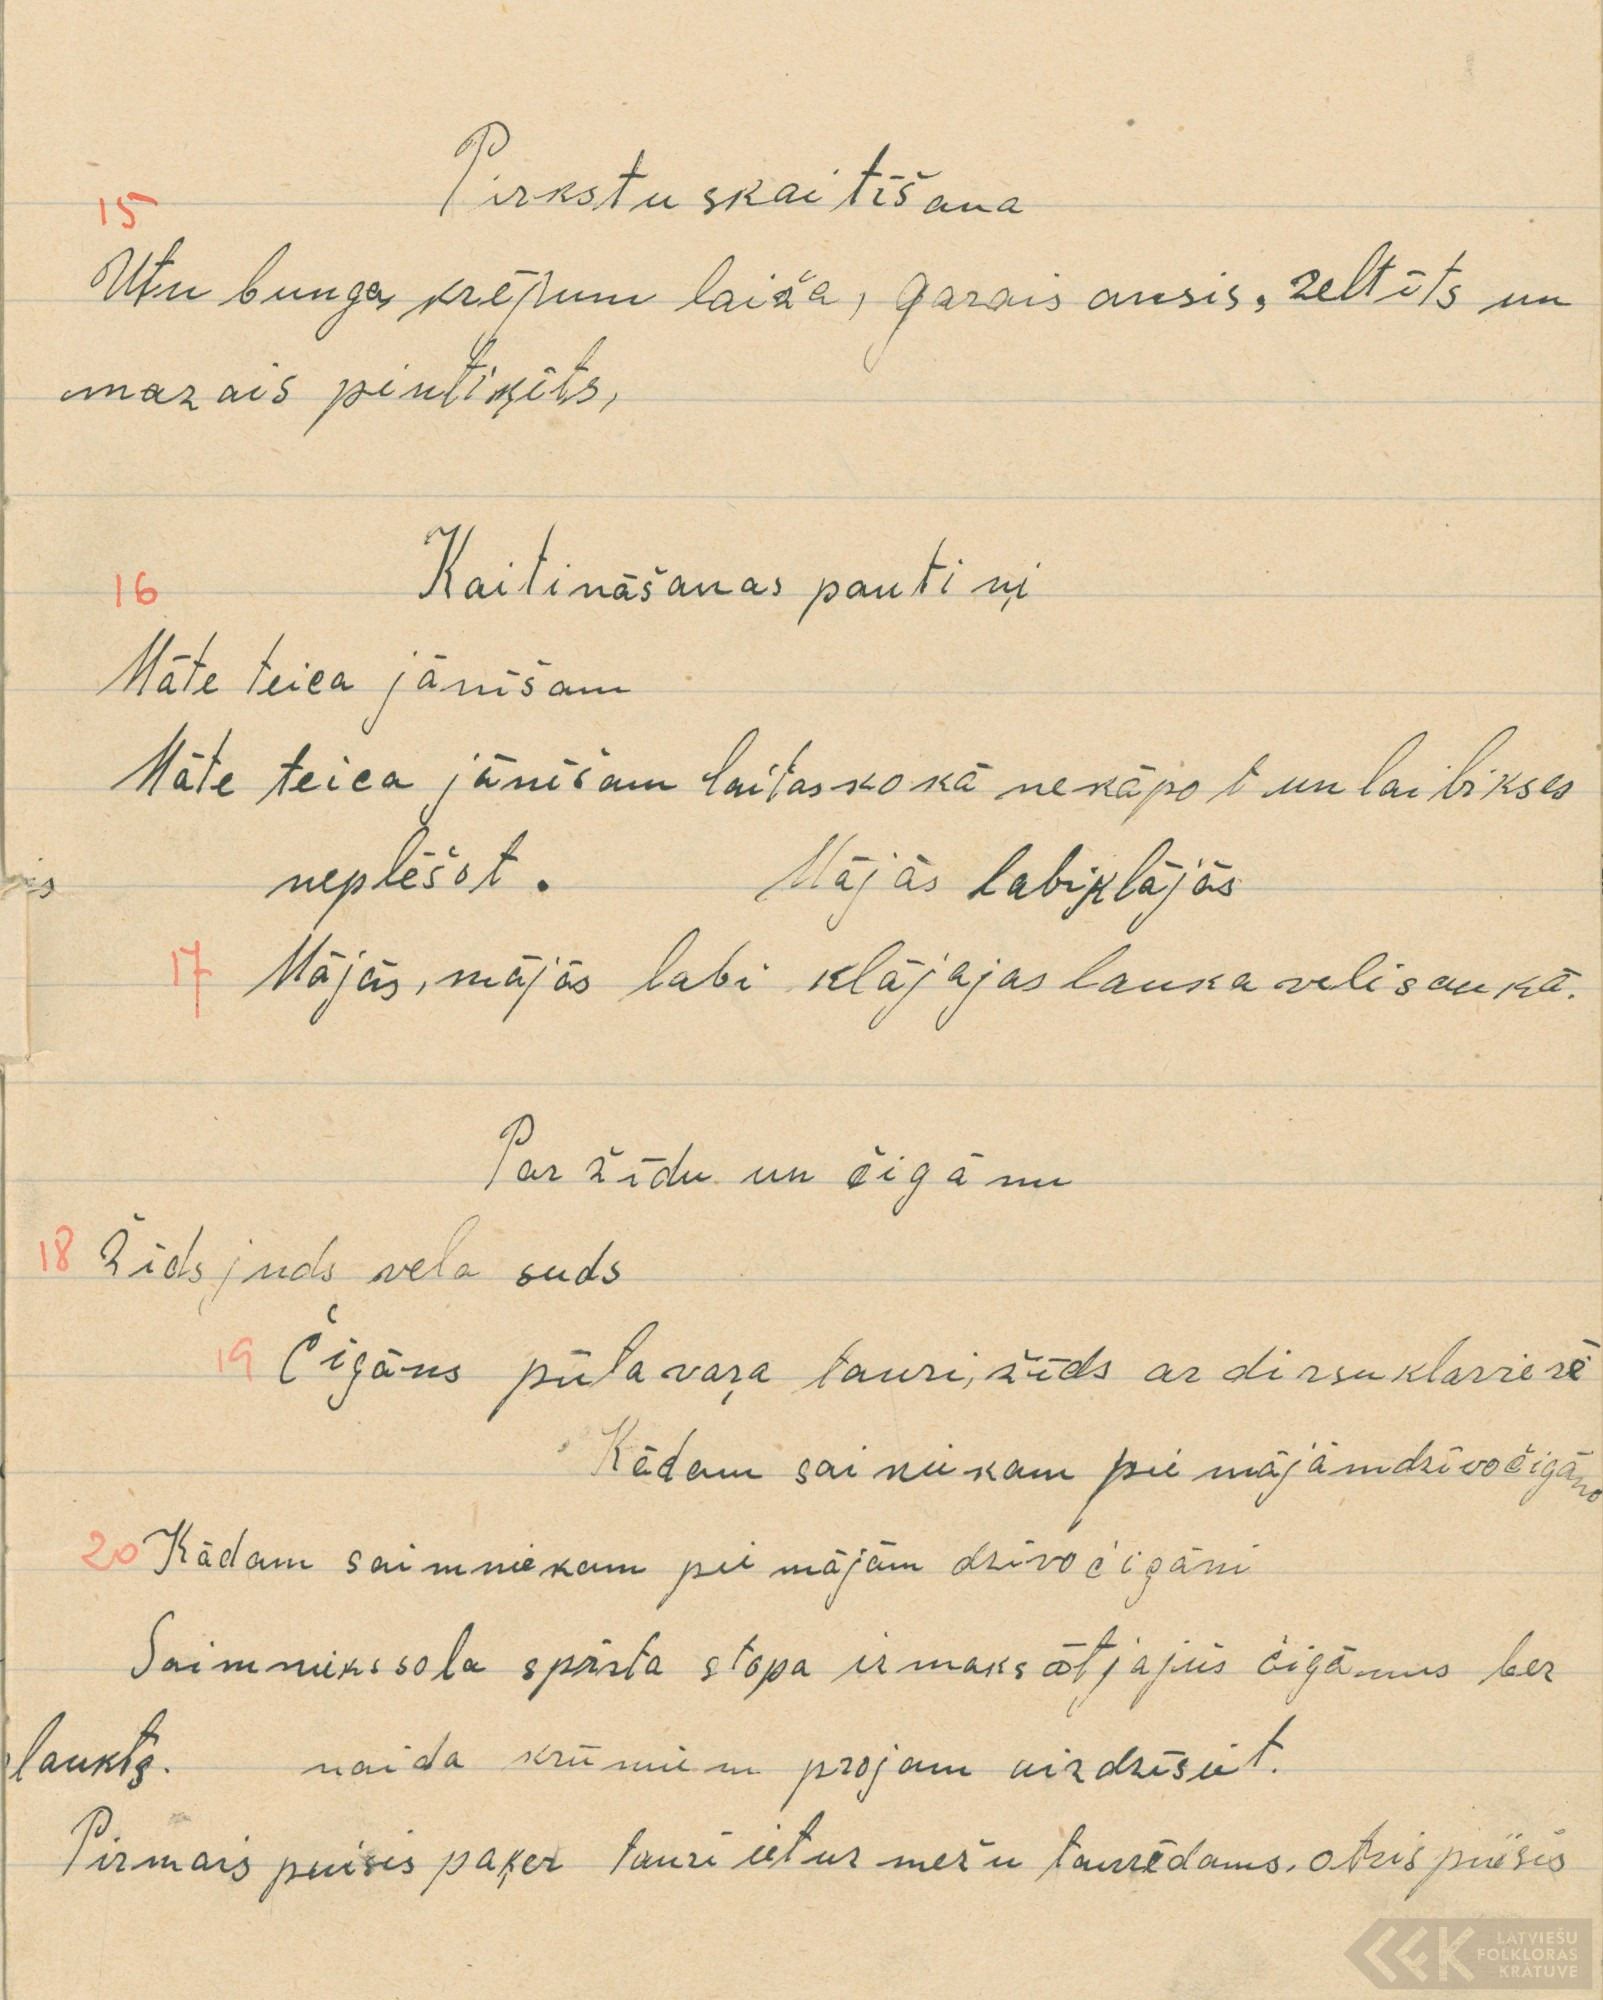 Pirkstu skaitīšana
15
Utu bunga, krējum laiža, garais ansis, zeltīts un
mazais pintiķīts,
16
Kaitināšanas pantiņi
Māte teica jānīšam
Māte teica jānīšam laitas kokā nekāpot un lai bikses
neplēšot.
Mājās labi klājās
17 Mājās, mājās labi klājajas lauka veli sauka.
Par žīdu un čigānu
18 Žīds juds vela suds
19 Čigāns pūta vaŗa tauri, žīds ar dirsu klavierē
Kādam sainiekam pie mājām dzīvo čigāno
20 Kādam saimniekam pie mājām dzīvo čigāni
Saimnieks sola stopa izmaksāt ja jūs čigānus bez
naida krūmiem projam aizdzīsiet.
Pirmais puisis paķer tauri iet uz mežu taurēdams, otris puisis
LATVIEŠU
FOLKLORAS
KRĀTUVE